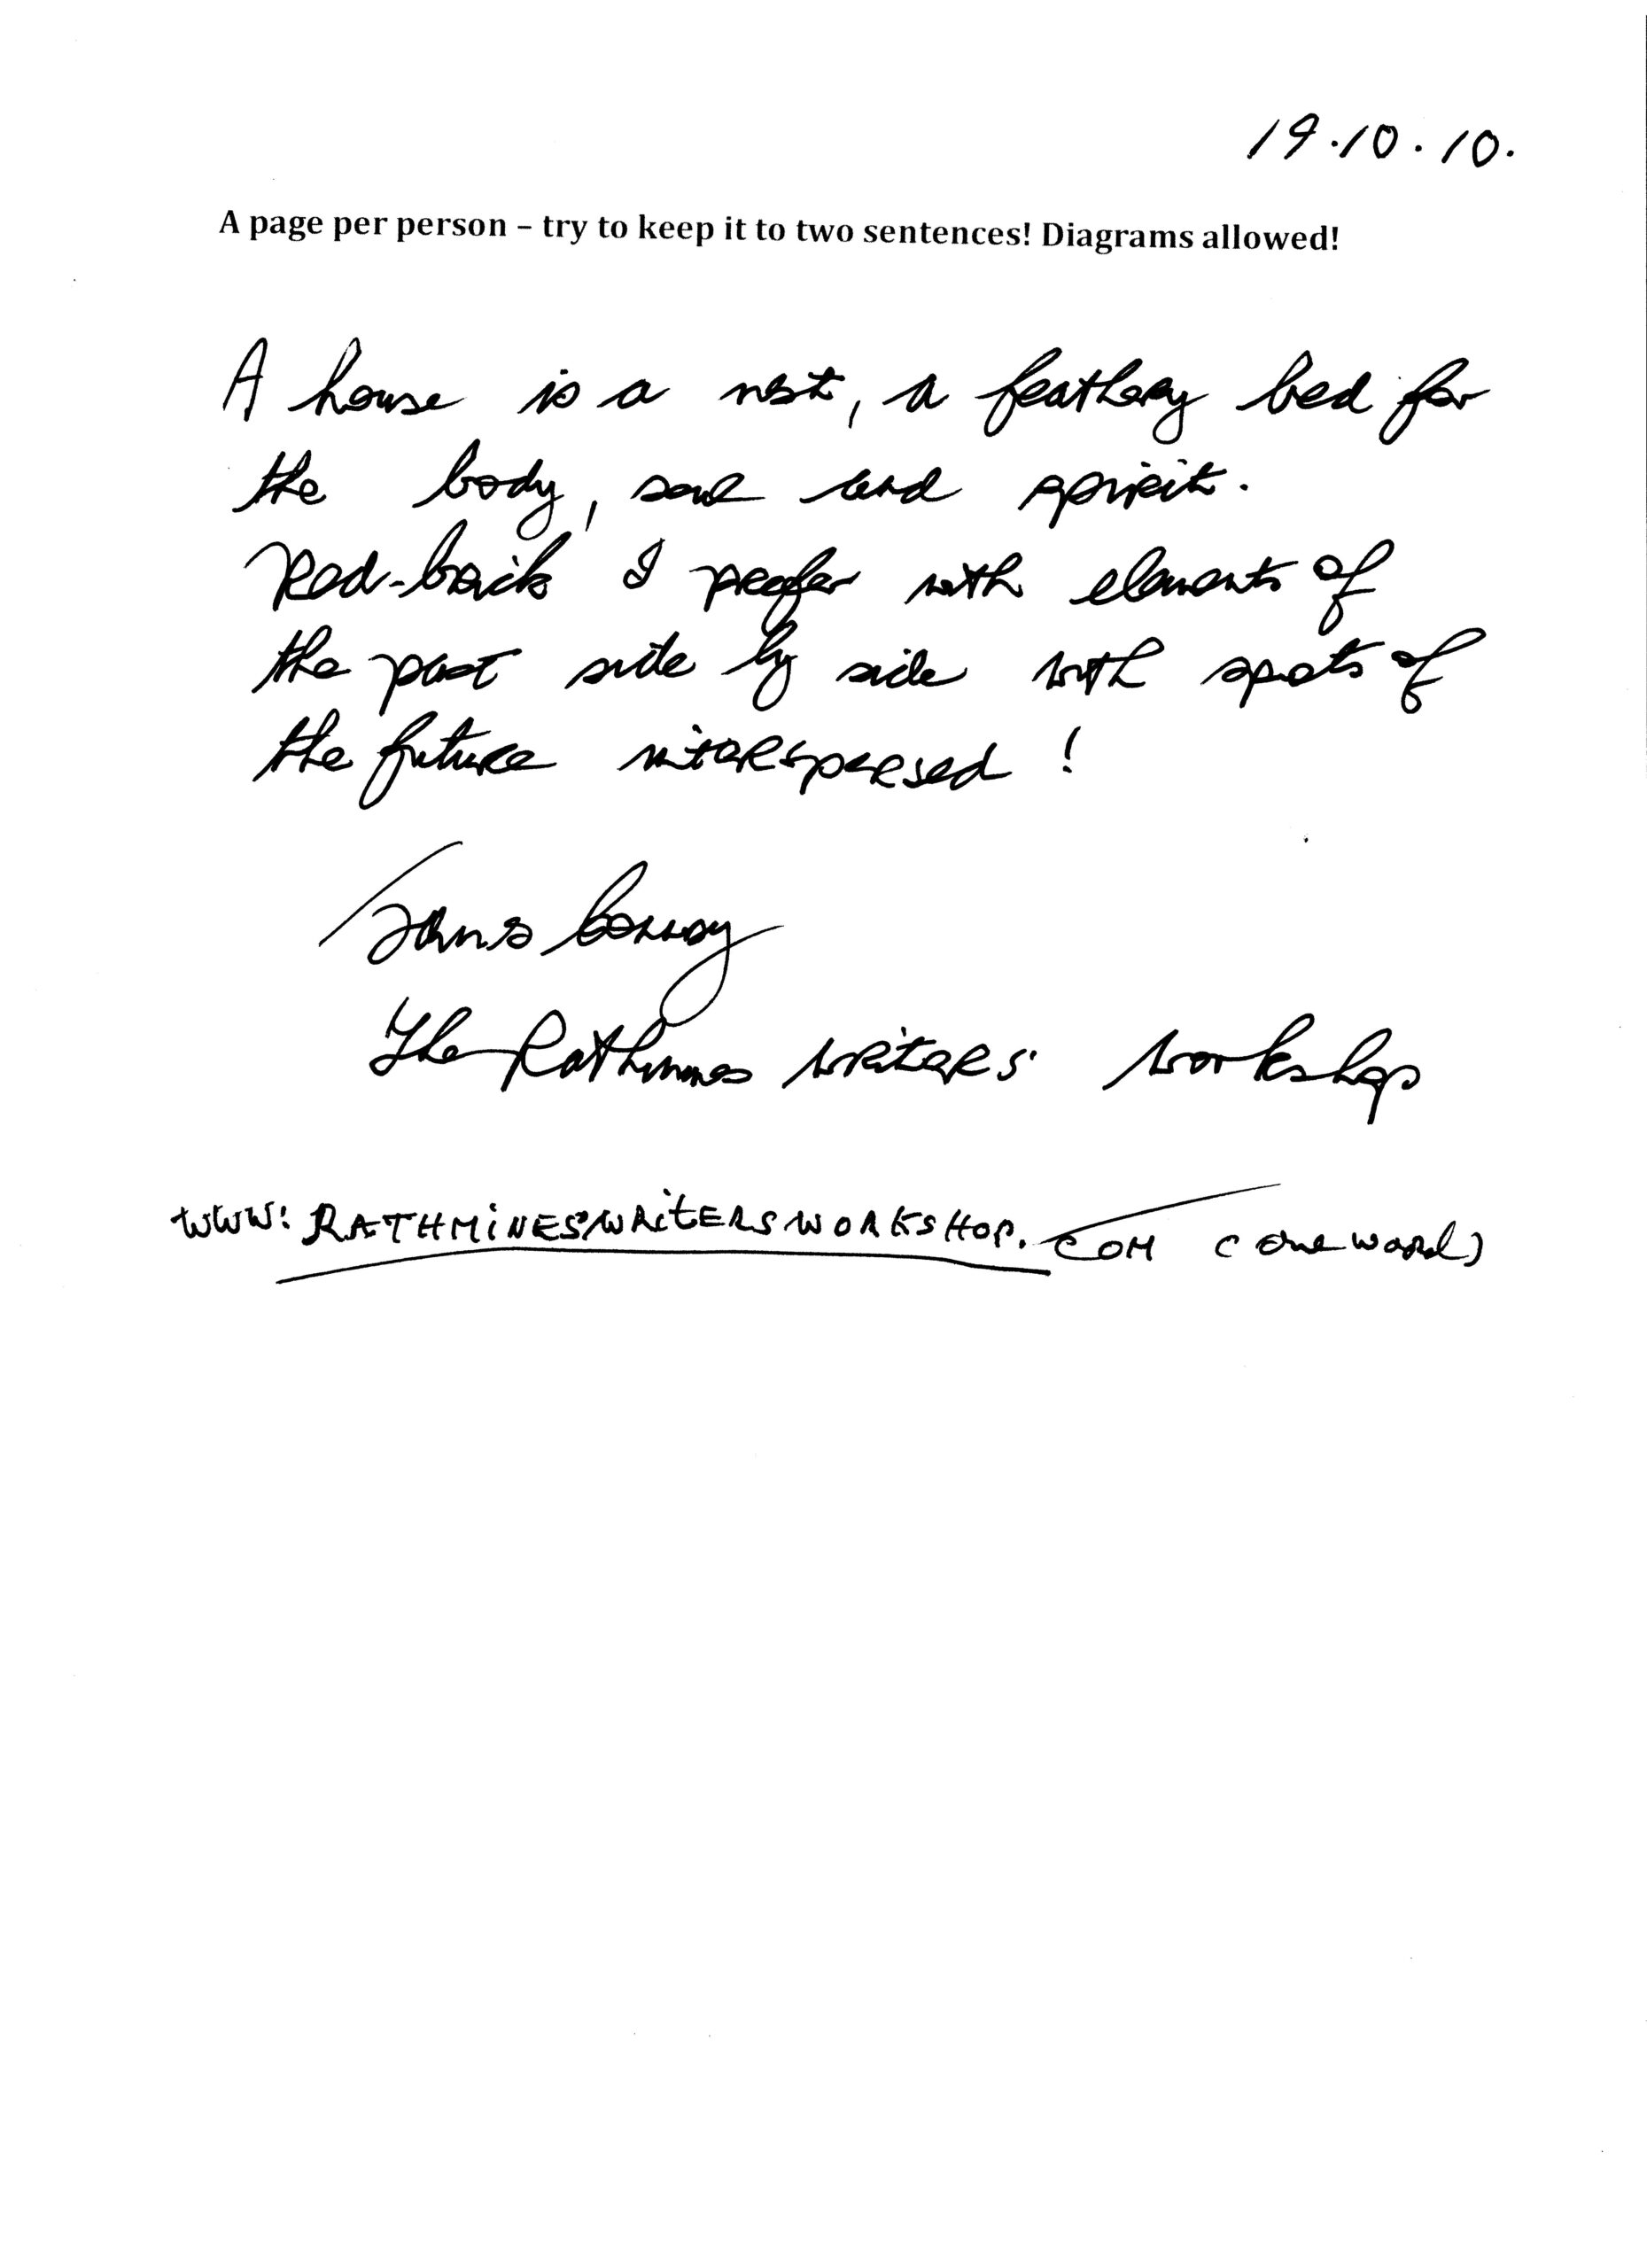 19.10.10.
A page per person – try to keep it to two sentences! Diagrams allowed!
A house is a nest, a feathery bed for
the body, soul and spirit.
Red-brick I prefer with elements of
the past side by side with spots of
the future interspersed!
James Conway
The Rathmines Writers' Workshop
WWW. RATHMINESWRITERSWORKSHOP. COM (one word)